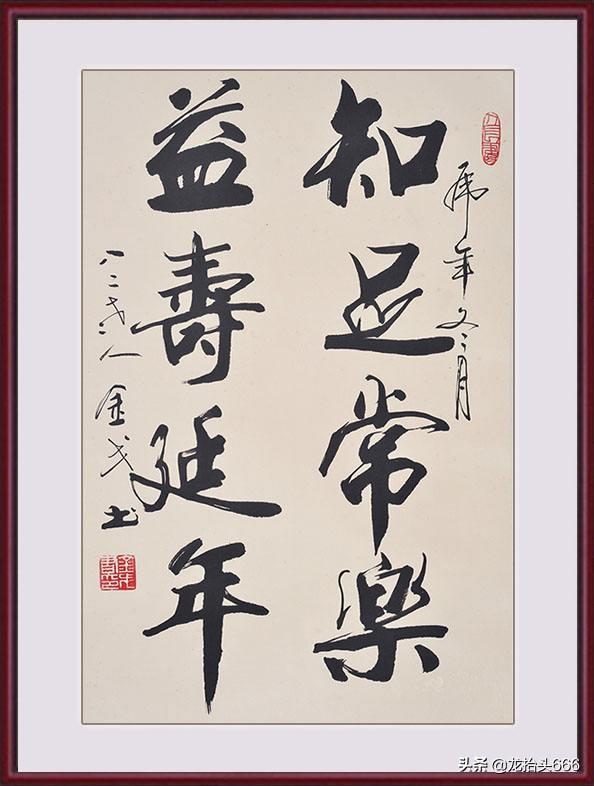 虎年冬月
知足常樂
益壽延年
八二老人金戈书
头条 @龙抬头666